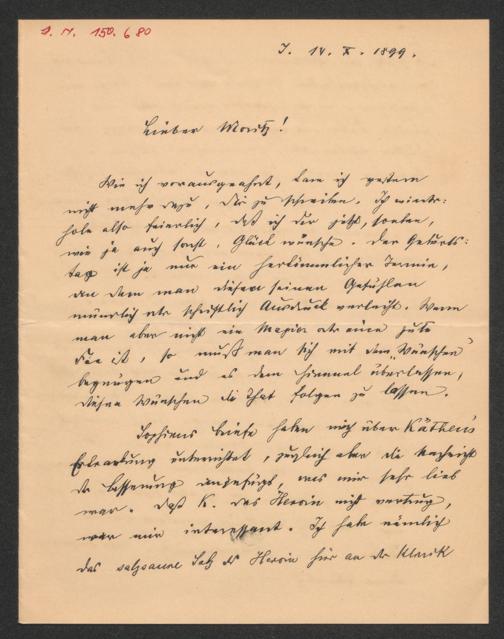 J. N. 150.680
J. 14. X. 1899.
Lieber Moritz!
Wie ich vorausgeahnt, kam ich gestern
nicht mehr dazu, Dir zu schreiben. Ich wieder:
hole also feierlich, daß ich Dir jetzt, sonten,
wie ja auch sonst, Glück wünsche. Der Geburts:
tag ist ja nur ein herkömmlicher Termin,
an dem man diesen seinen Gefühlen
mündlich oder schriftlich Ausdruck verleiht. Wenn
man aber nicht ein Magier oder eine gute
Fee ist, so muß man sich mit dem „Wünschen"
begnügen und es dem Himmel überlassen,
diesen Wünschen die That folgen zu lassen.
Sophiens Briefe haben mich über Käthen's
Erkrankung unterrichtet, zugleich aber die Nachricht
der Besserung angefügt, was mir sehr lieb
war. Daß K. das Heroin nicht vertrug,
war mir interessant. Ich habe nämlich
das salzsaure Salz des Heroin hier an der Klinik